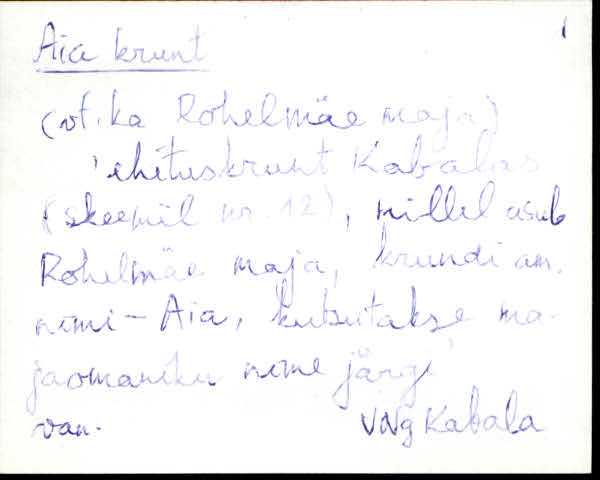 1
Aia krunt
(vt. ka Rohelmäe maja)
'ehituskrunt Kabalas
(skeemil nr. 12), millel asub
Rohelmäe maja, krundi am.
nimi - Aia, kutsutakse ma-
jaomaniku nime järgi'
van. VNg Kabala